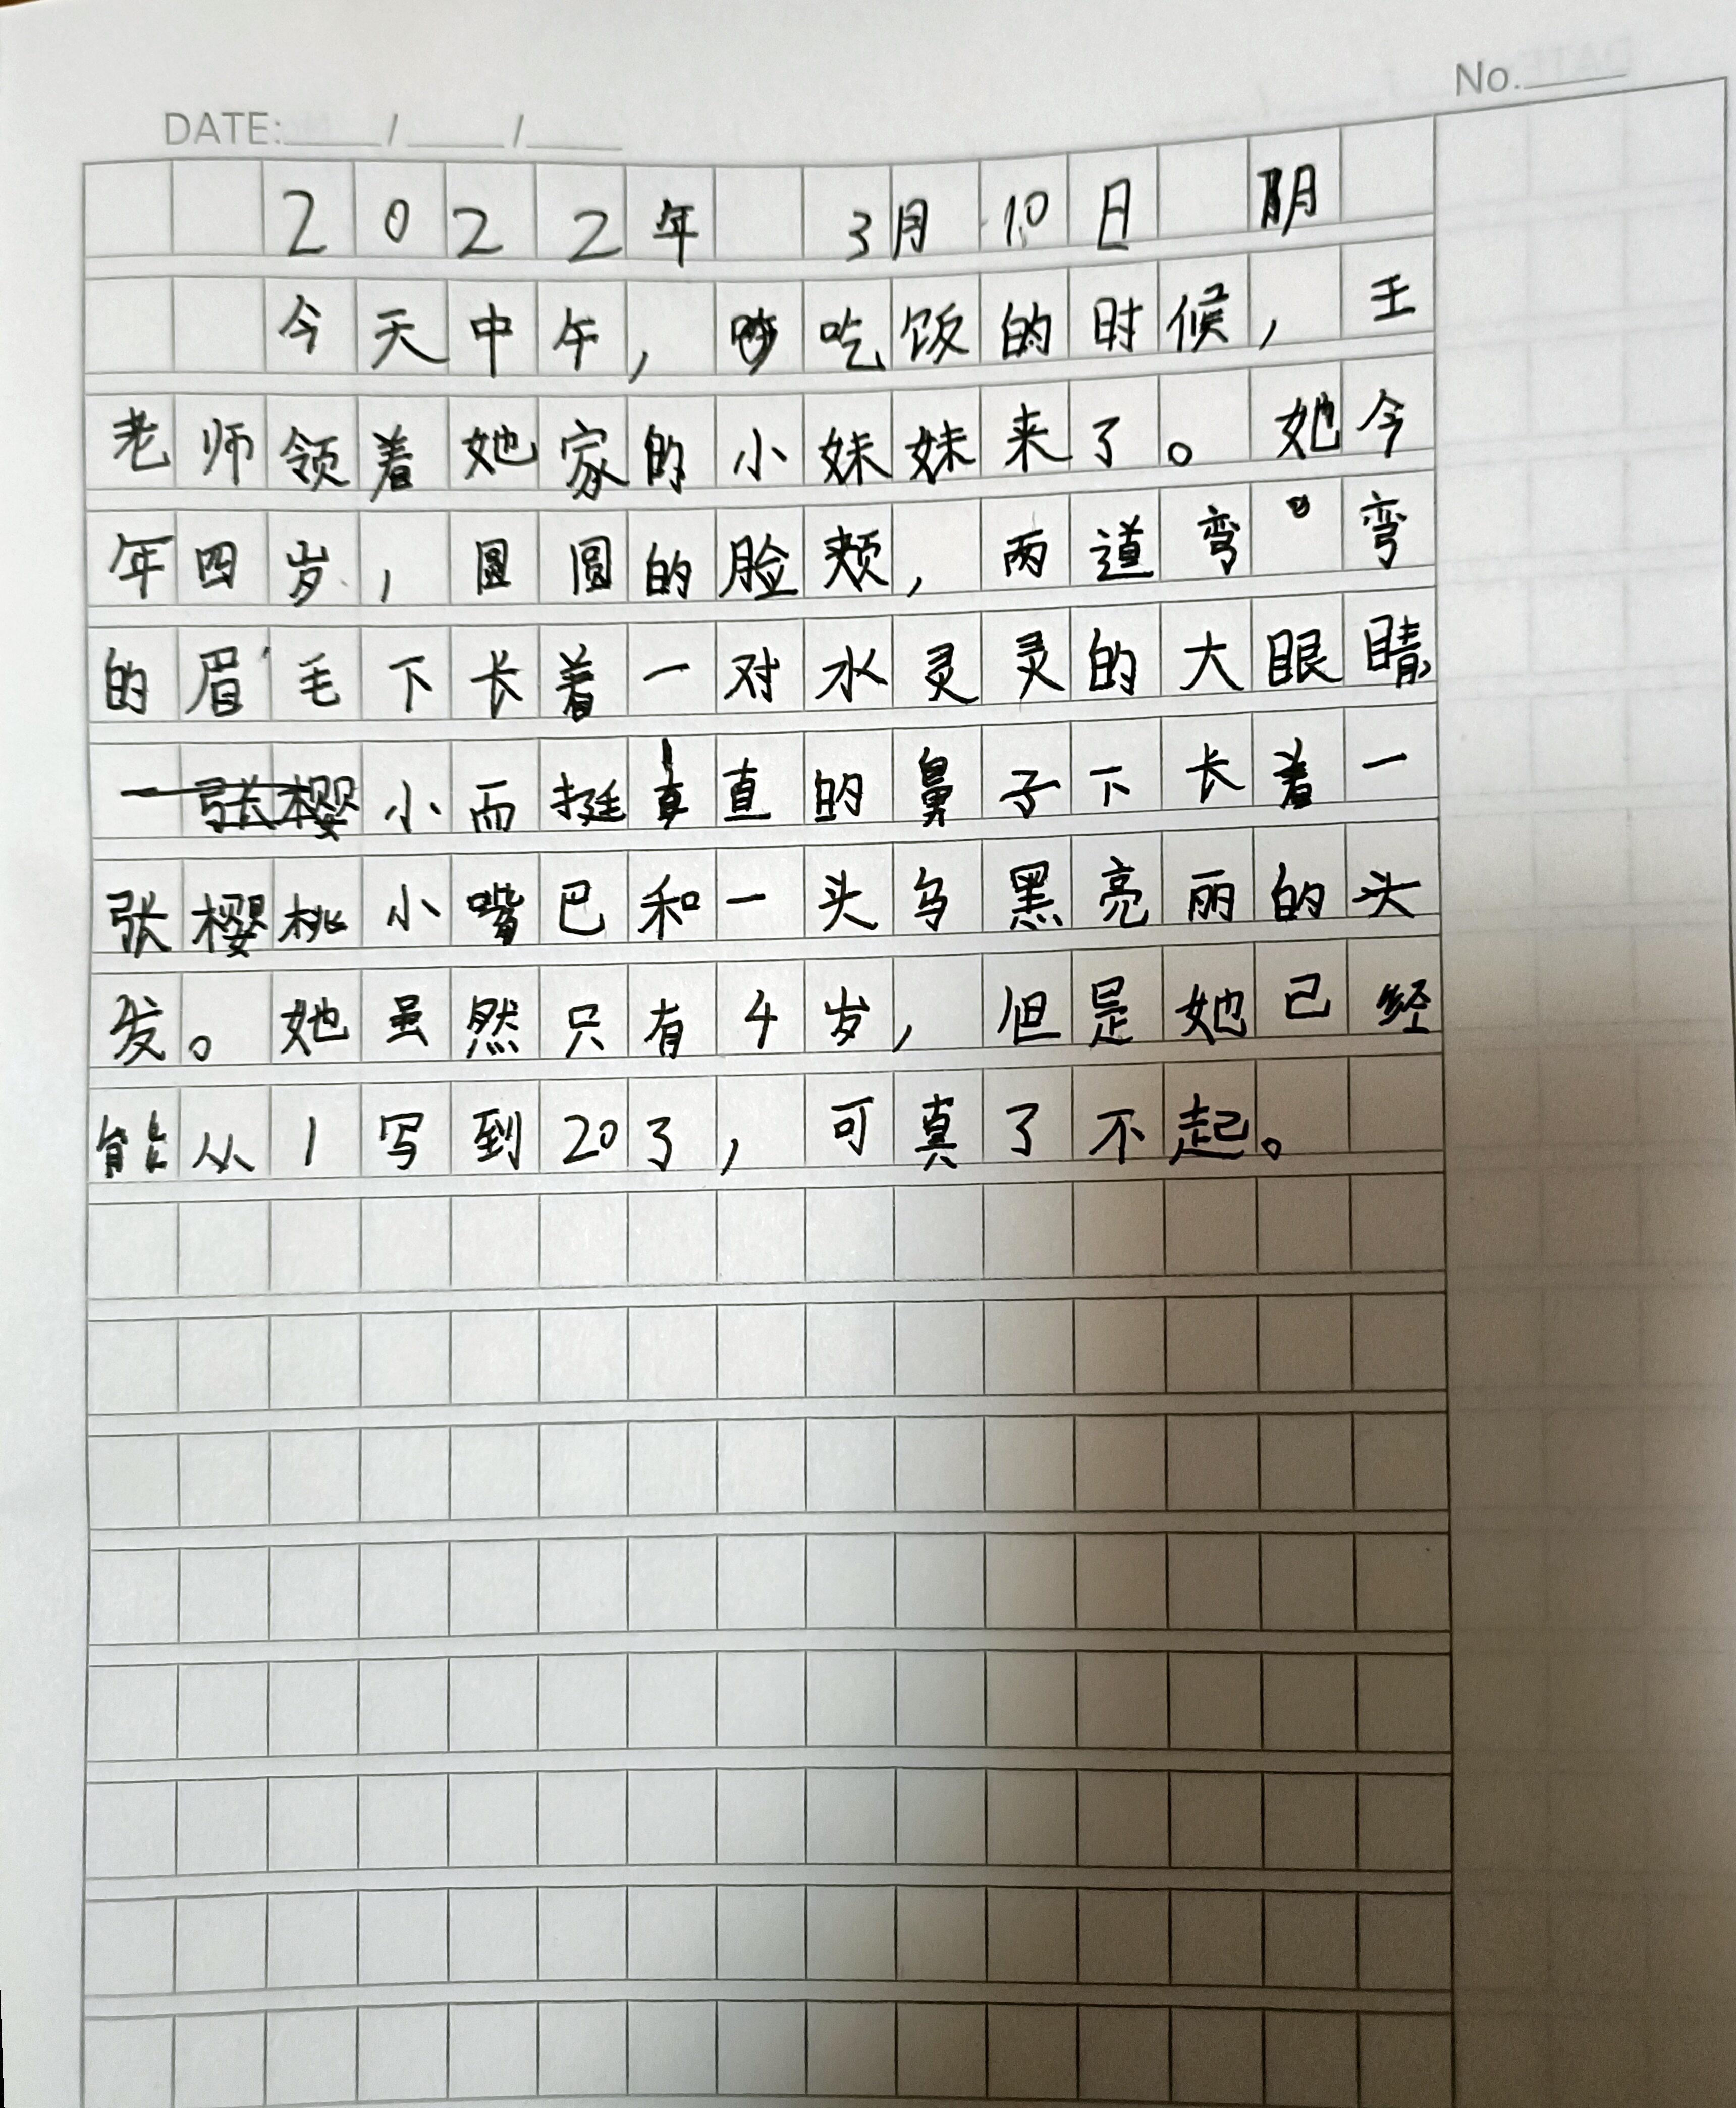 No.
DATE: / /
2022年 3月10日 阴
今天中午，吃饭的时候，王
老师领着她家的小妹妹来了。她今
年四岁，圆圆的脸颊，两道弯弯
的眉毛下长着一对水灵灵的大眼睛，
小而挺直直的鼻子下长着一
张樱桃小嘴巴和一头乌黑亮丽的头
发。她虽然只有4岁，但是她已经
能从1写到20了，可真了不起。